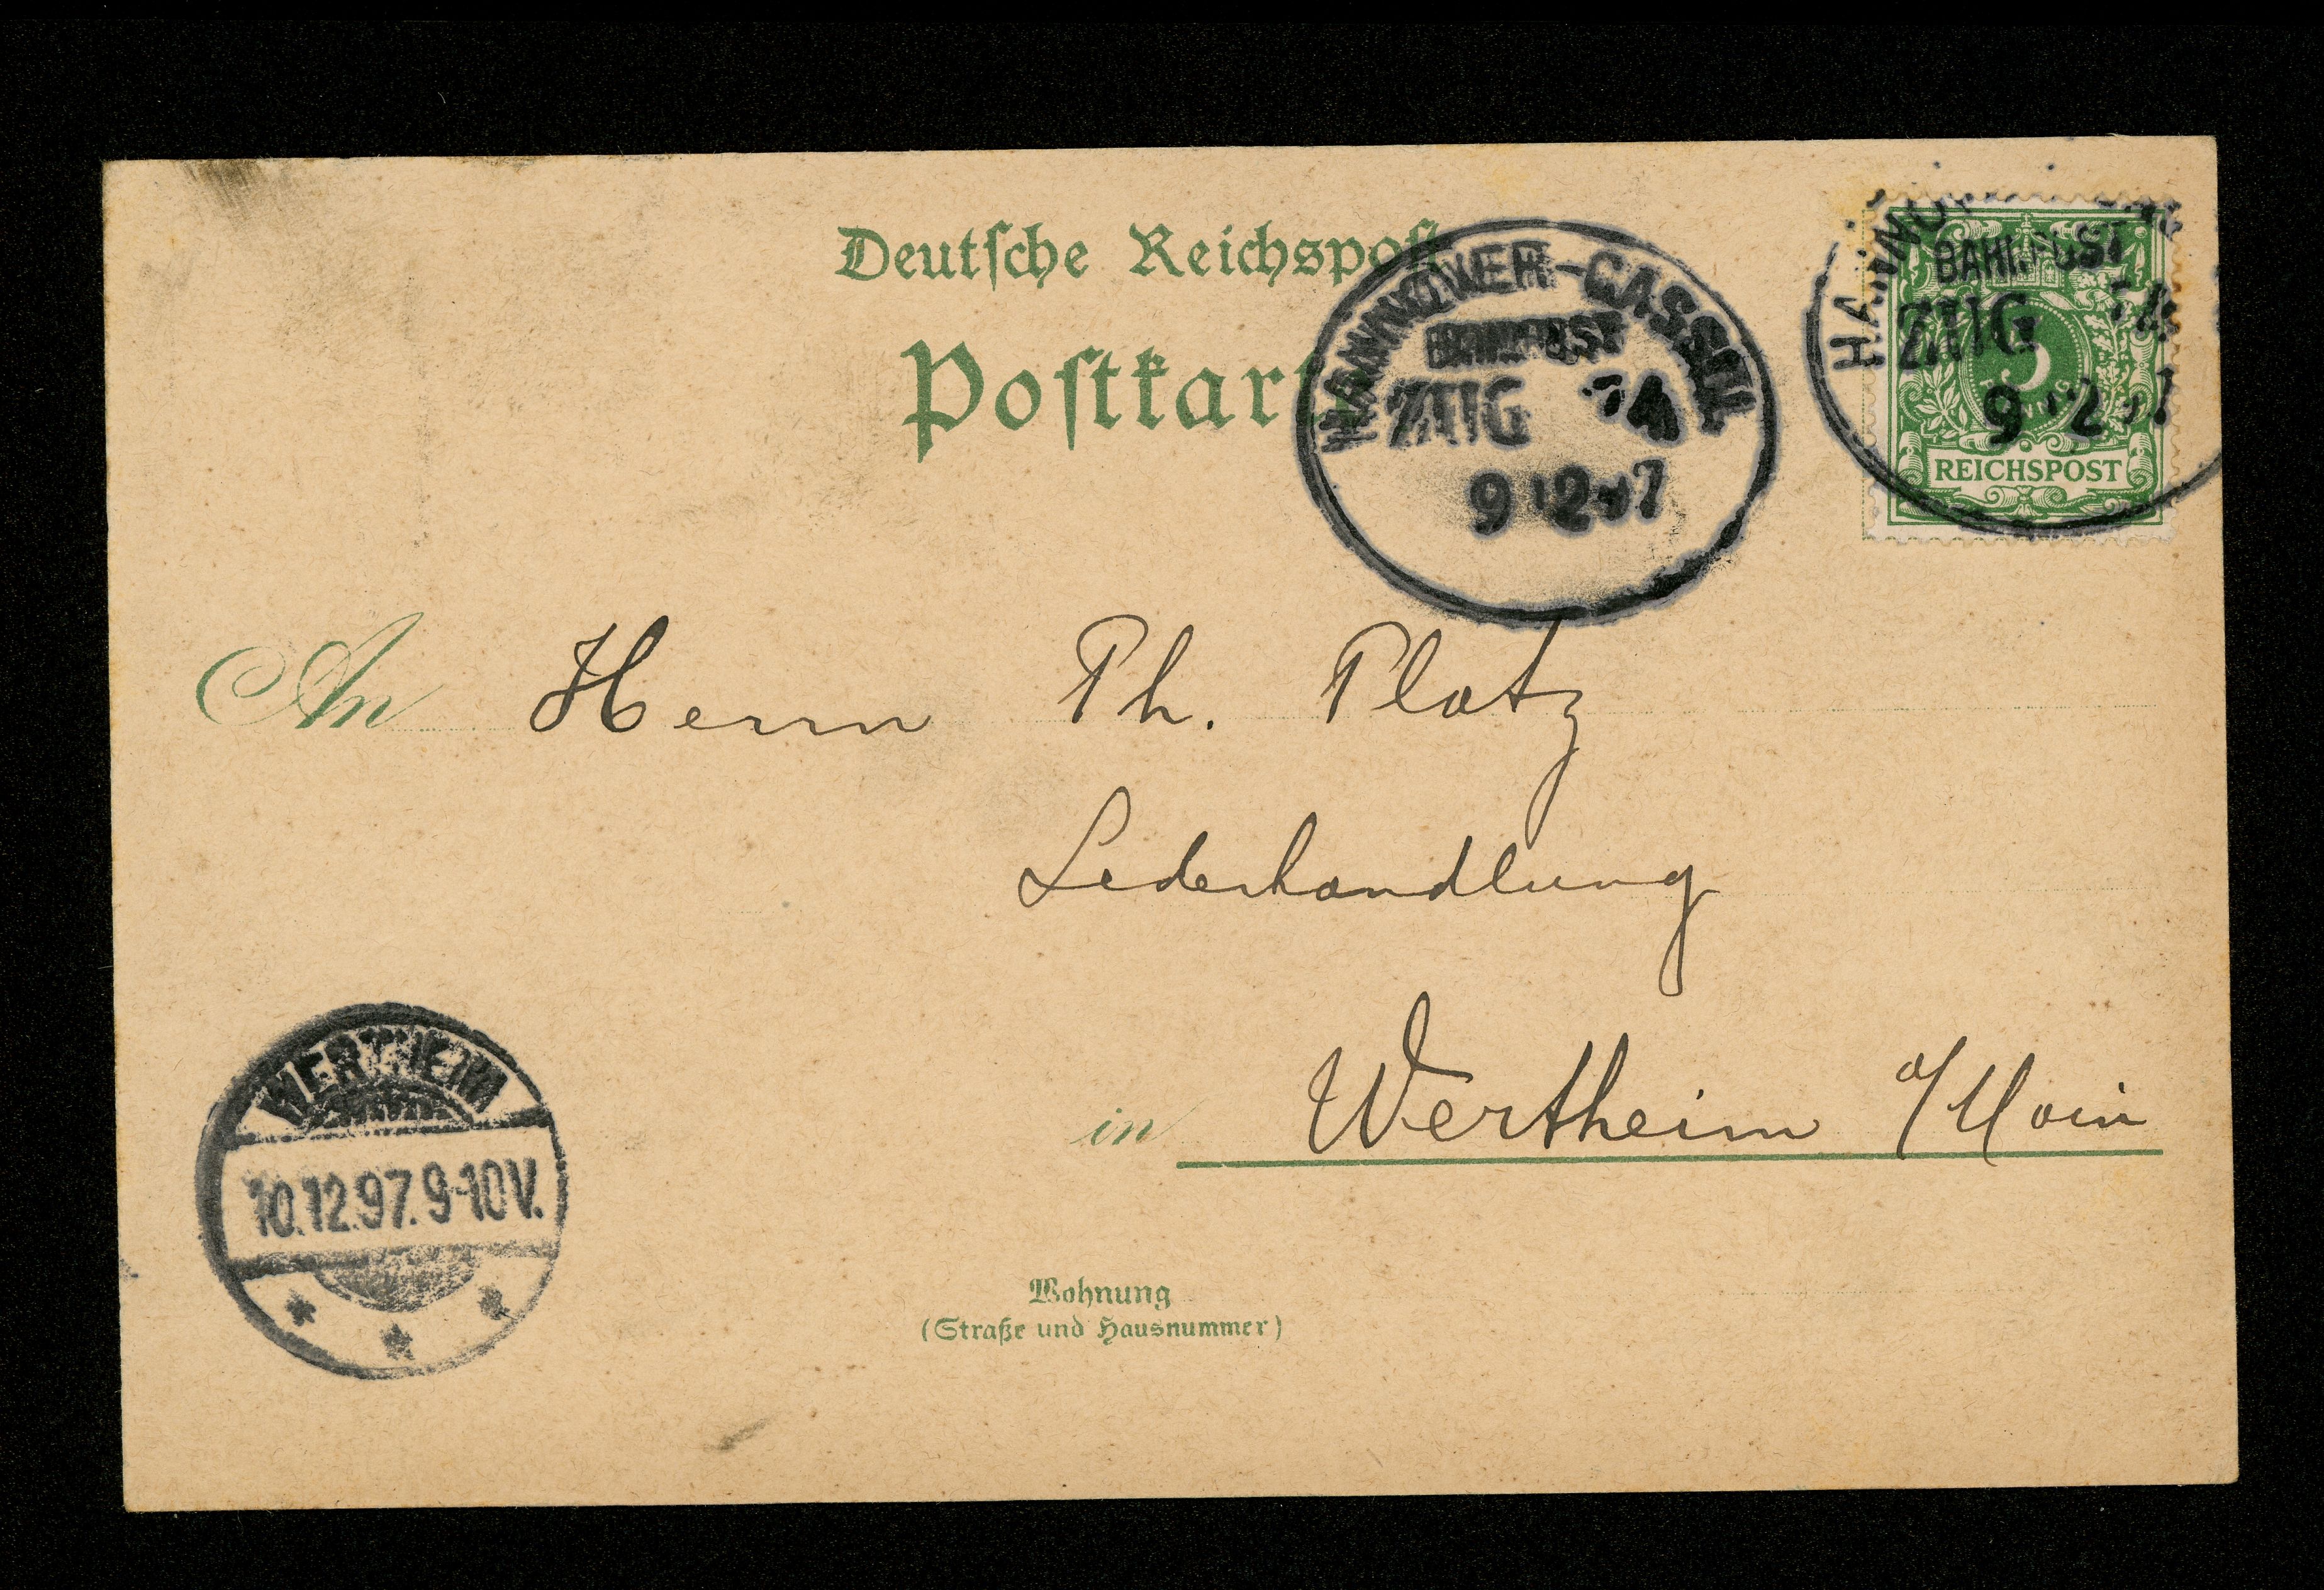 Deutsche Reichspost
Postkarte
HANNOVER-CASSEL
BAHNPOST
ZUG 74
9 12 97
HANNO
BAHNPOST
ZUG 74
9 12 97
5
PFENNIG
REICHSPOST
An Herrn Th. Platz
Lederhandlung
in Wertheim a/Main
WERTHEIM
10.12.97. 9-10V.
Wohnung
(Straße und Hausnummer)